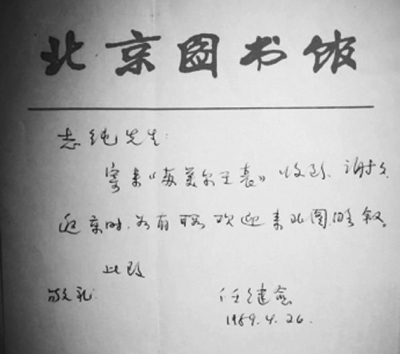 北京图书馆
志纯先生:
寄来《苏美尔王表》收到,谢々
京时,如有暇,欢迎来北图晤叙。
此致
敬礼 任继愈
1989.4.26.